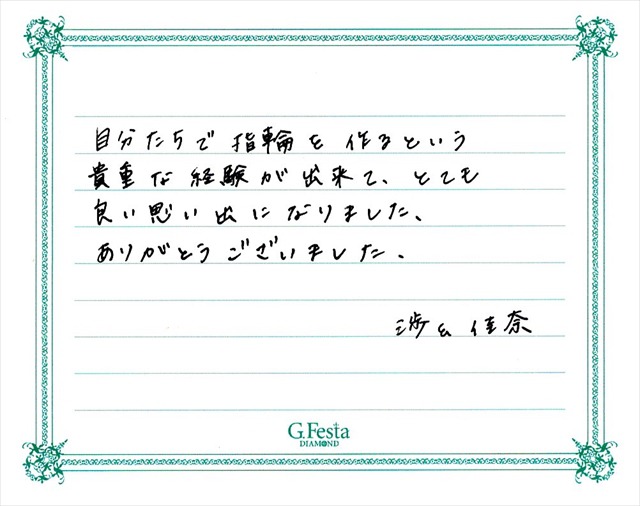 自分たちで指輪を作るという
貴重な経験が出来て、とても
良い思い出になりました。
ありがとうございました。
渉&佳奈
G.Festa
DIAMOND